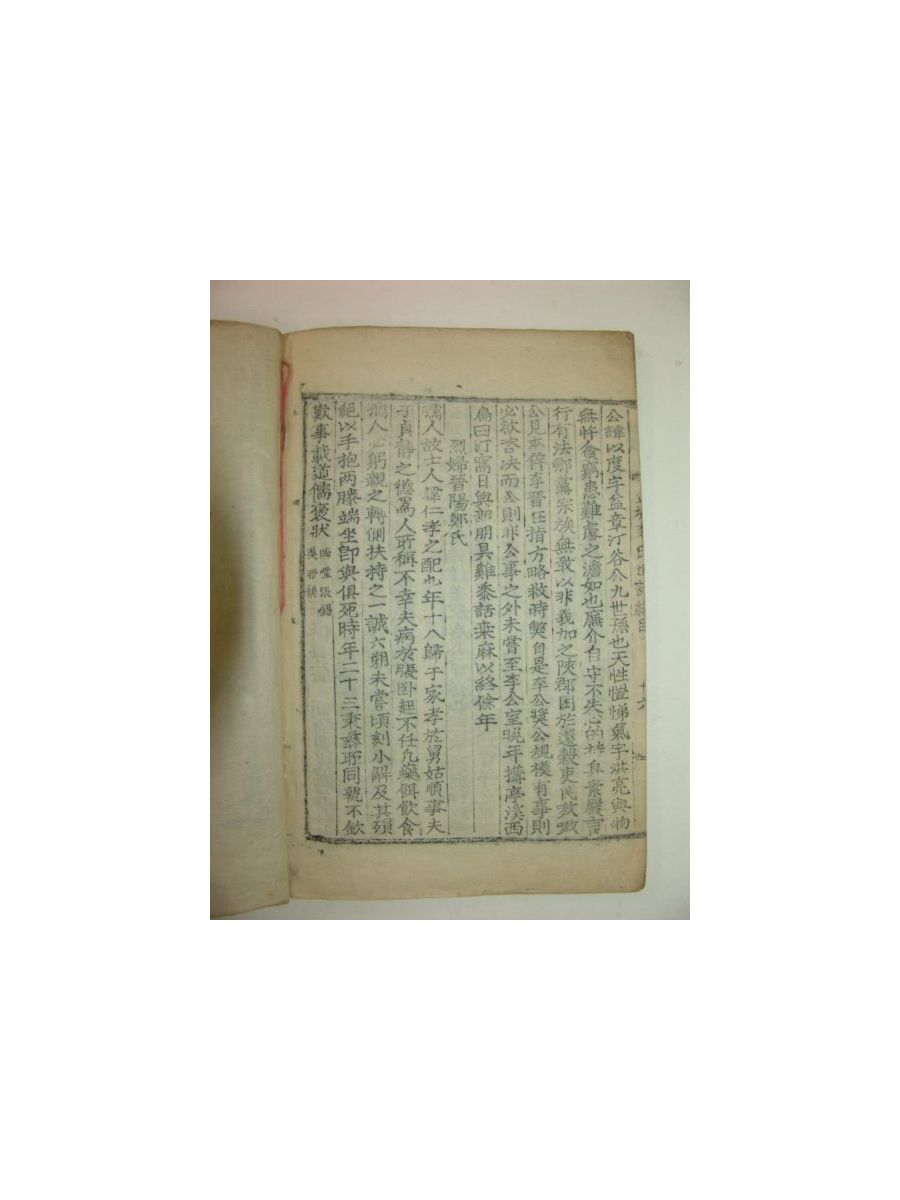 公諱以度字益尊汀谷公九世孫也天性愷悌氣宇洪亮與物
無忤貪窮患難處之澹如也廉介自守不失心的持身素嚴言
行有法鄉黨宗族無敢以非義加之陜郡困於還穀吏民嗷嗷
公見本倅李晉任指方略救時獘自是李公奬公規模有事則
必欲咨決而公則非公事之外未嘗至李公室晩年搆亭溪西
扁曰汀窩日與親朋具雞黍話桒麻以終餘年
烈婦晉陽鄭氏
孺人故士人諱仁孝之配也年十八歸于家孝於舅姑順事夫
子貞靜之德爲人所稱不幸夫病於脹卧起不任凡藥餌飮食
孺人必躬親之轉側扶持之一誠六朔未嘗頃刻小解及其殞
絕以手抱两膝端坐卽與俱死時年二十三秉彛所同孰不欽
歎事載道儒褒狀
晦堂張錫
英 撰
十六